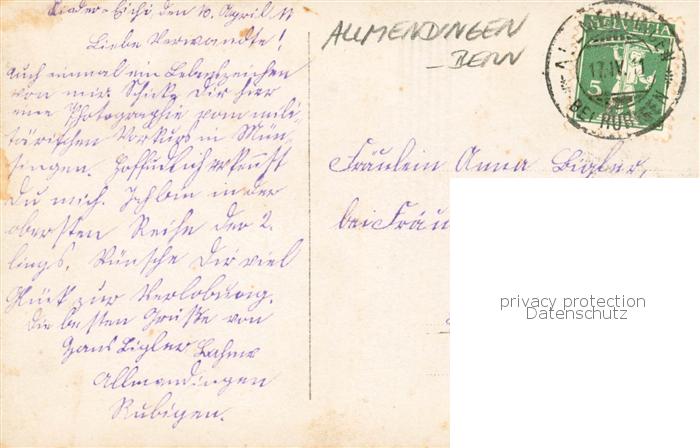 den 10. April 11
Liebe Verwandte!
Auch einmal ein Lebenszeichen
von mir. Schicke Dir hier
eine Photographie vom mili-
tärischen Vorkurs in Mün-
singen. Hoffendlich erkennst
Du mich. Ich bin in der
obersten Reihe der 2.
lings. Wünsche Dir viel
Glück zur Verlobung.
Die besten Grüße von
Hans Bigler
Allmendingen
Rubigen.
ALLMENDINGEN
-BERN
HELVETIA
5
17.IV.11
BEI RUBIGEN
Fräulein Anna Bigler,
bei Fräu
privacy protection
Datenschutz